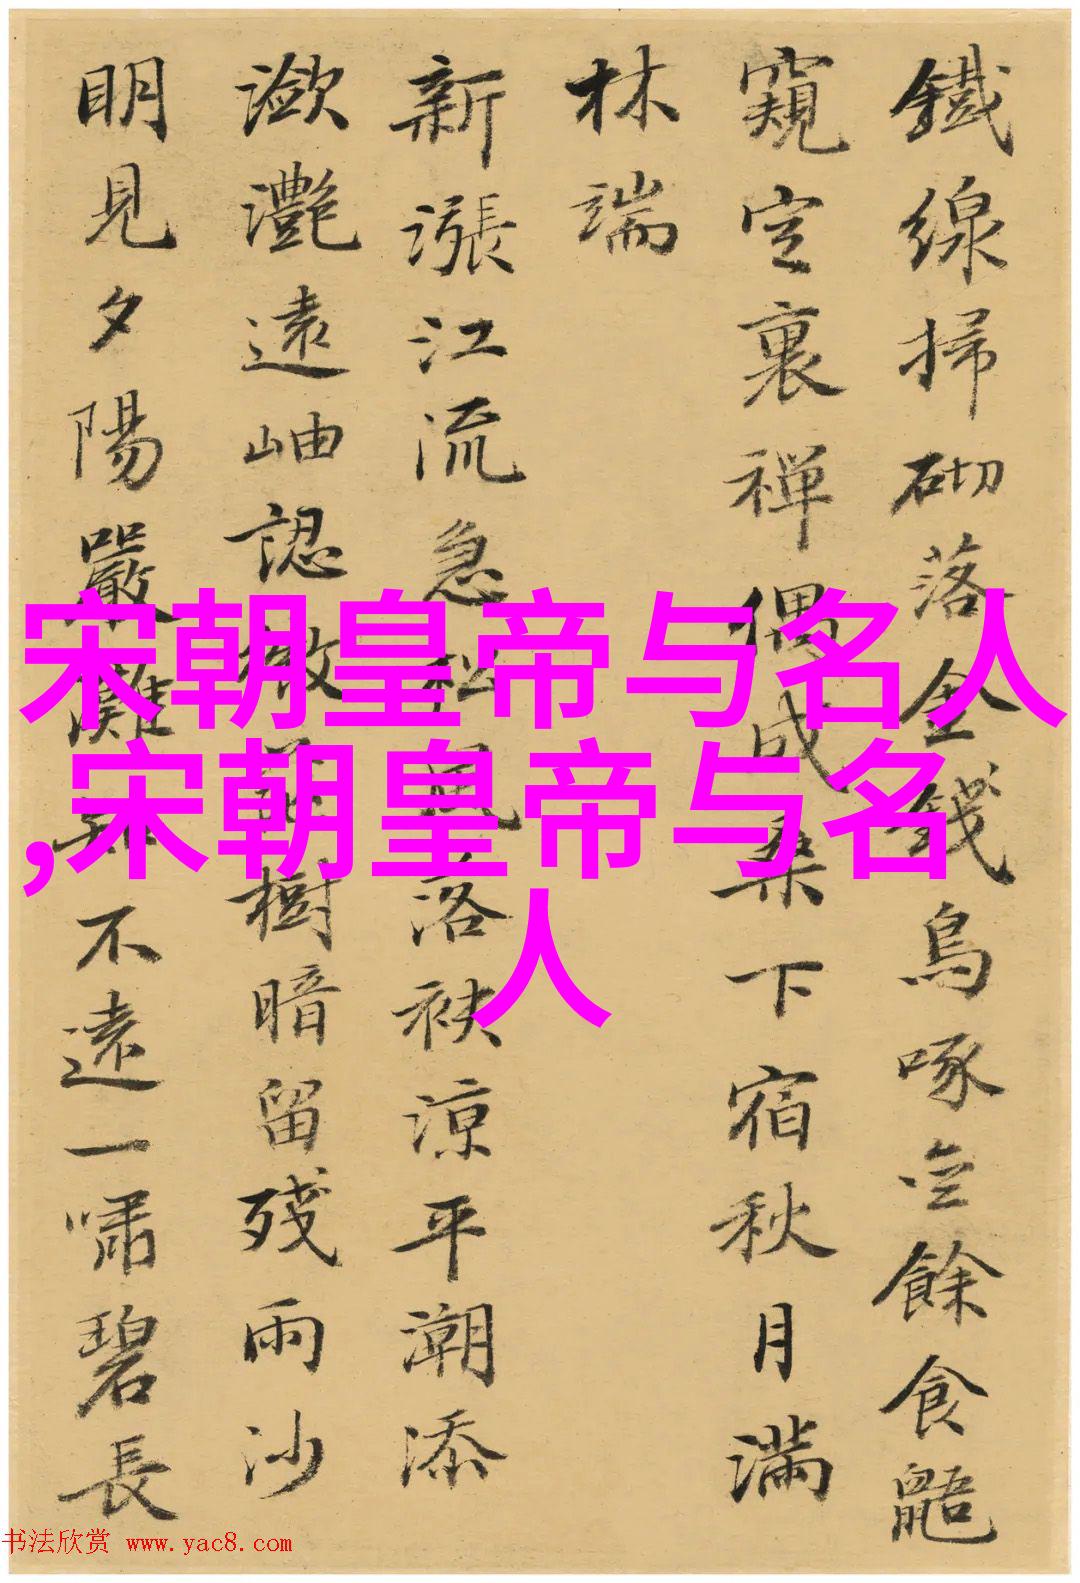 鐵線掃砌落金錢鳥啄空餘食鼯
窺定裏禪偶成桑下宿秋月滿
林端
新漲江流急松風落袂涼平潮添
瀲灧遠岫認微茫樹暗留殘雨沙
明見夕陽嚴灘不遠一嘯碧長
宋朝皇帝与名人
,宋朝皇帝与名
人
书法欣赏 www.yac8.com